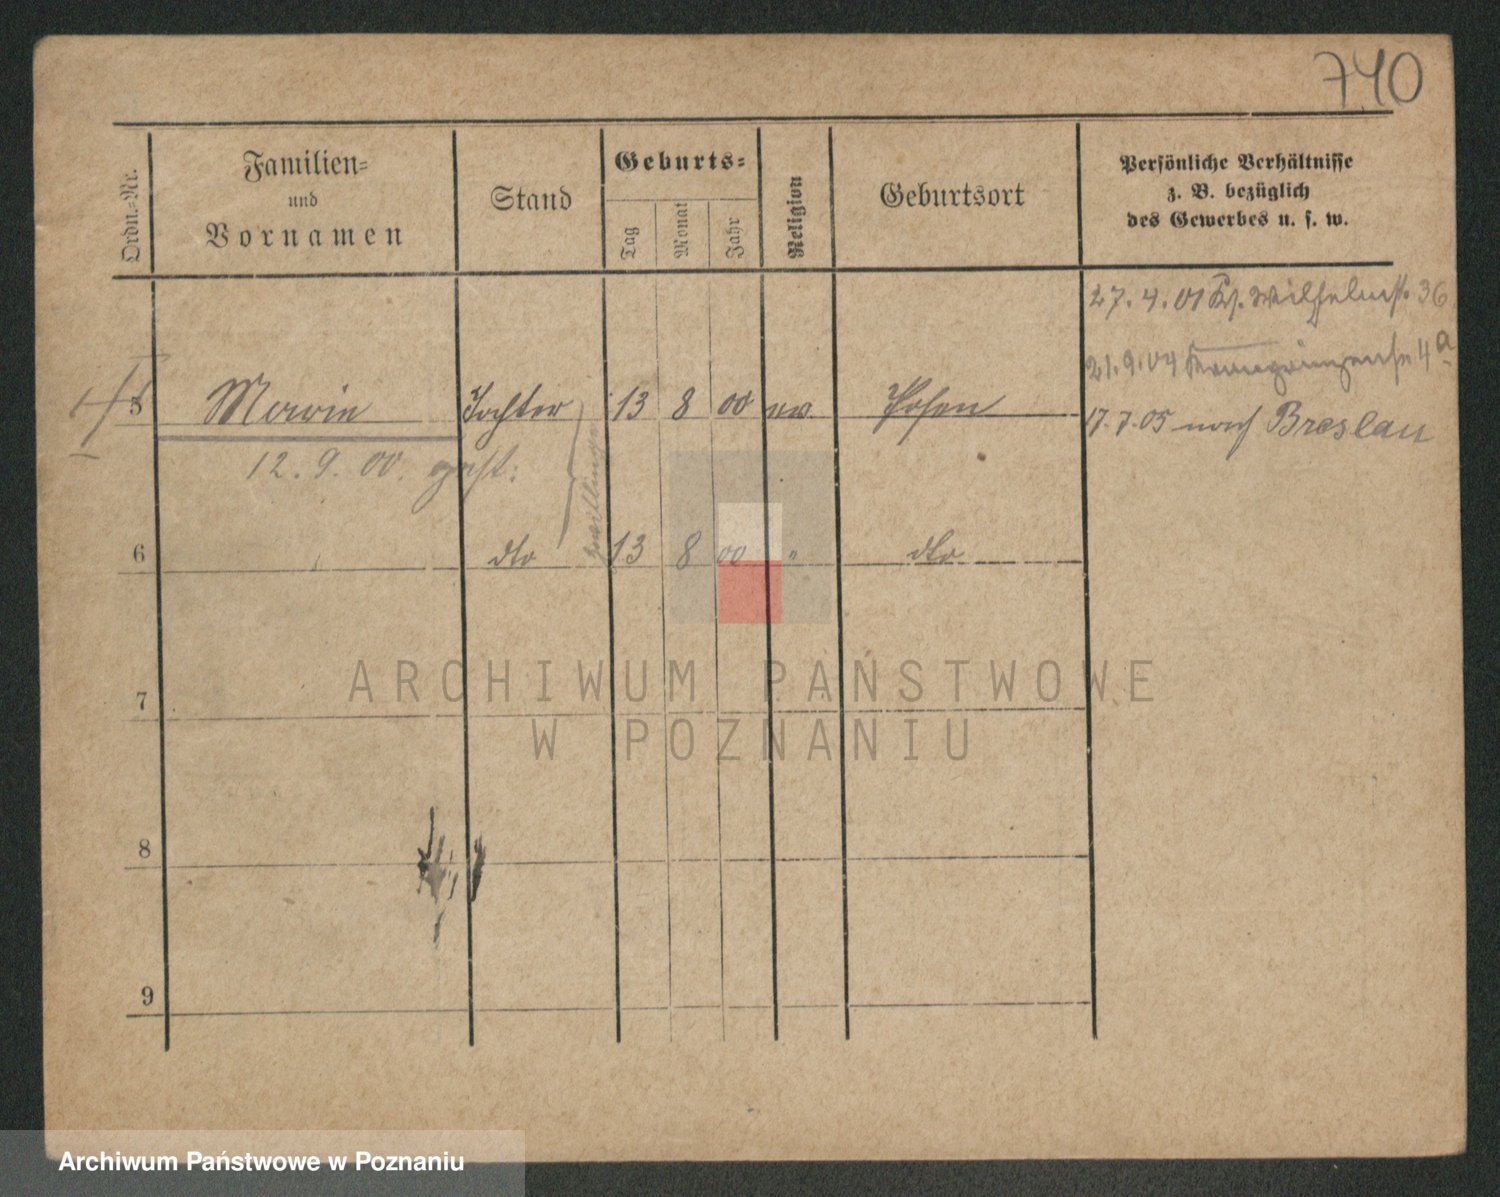 740
Ordn.-Nr.
Familien-
und
Vornamen
Stand
Geburts-
Tag
Monat
Jahr
Religion
Geburtsort
Persönliche Verhältnisse
z. B. bezüglich
des Gewerbes u. s. w.
27. 4. 01 Wilhelmstr. 36
21. 9. 04 Kronprinzenstr 4a
5 Tochter 13 8 00 ev. Posen
17. 7. 05 nach Breslau
12. 9. 00. gest.
Zwillinge
6 dto 13 8 00 " dto
7
8
9
ARCHIWUM PAŃSTWOWE
W POZNANIU
Archiwum Państwowe w Poznaniu